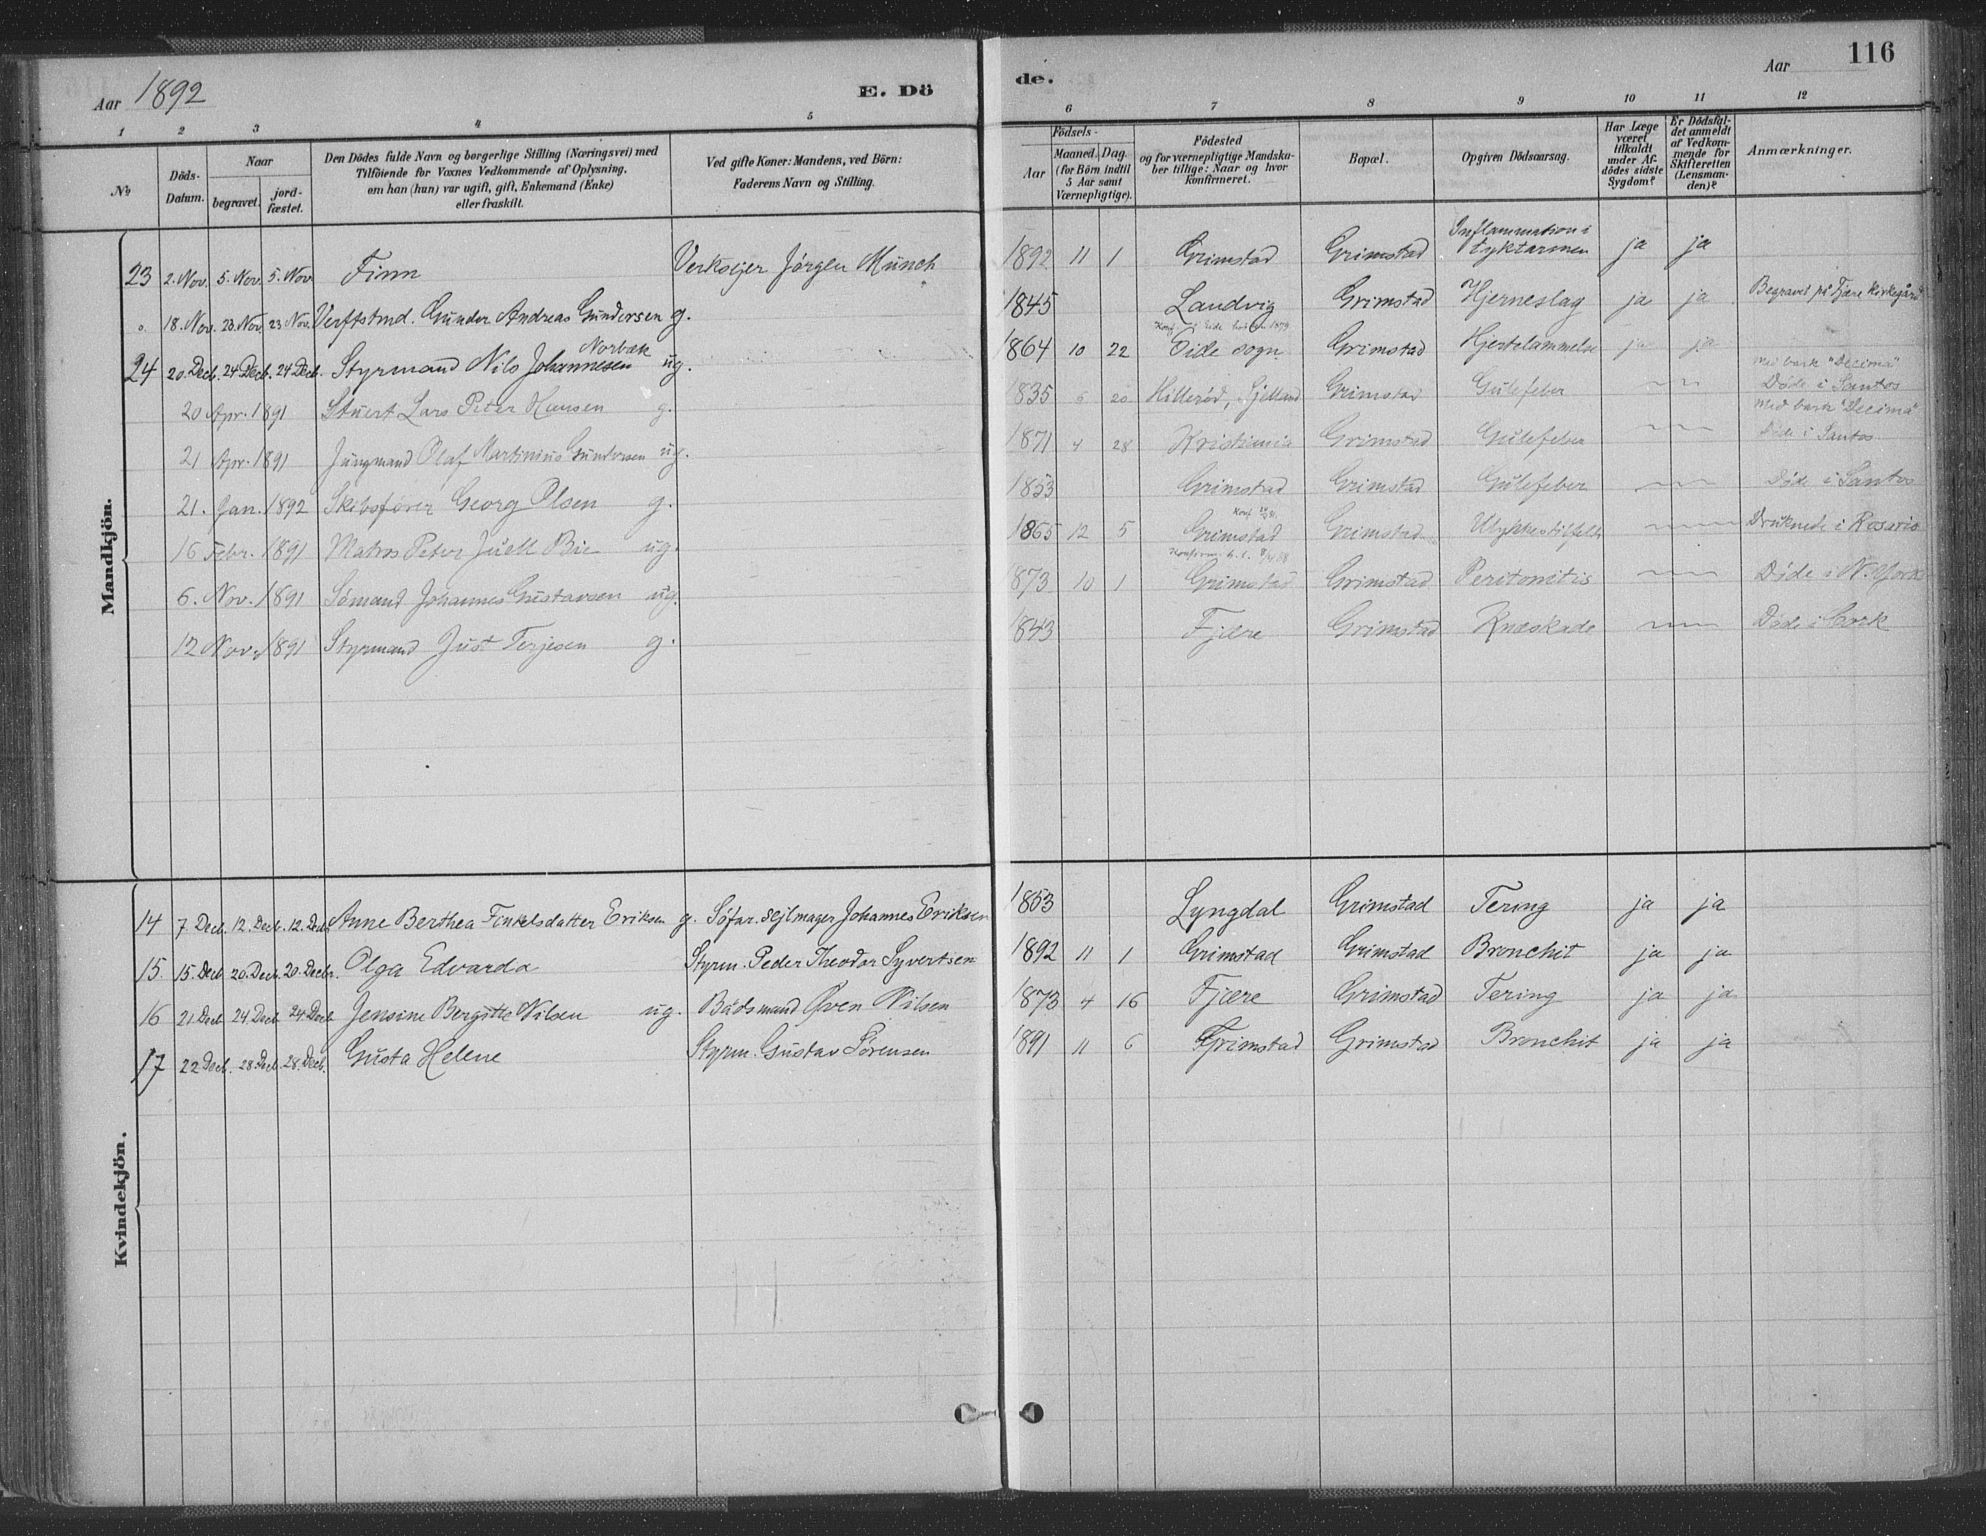 Aar 1892
E. Dö
de.
Aar
116
1 2 3 4 5 6 7 8 9 10 11 12
No
Döds-Datum.
Naar
begravet.
jord-fæstet.
Den Dödes fulde Navn og borgerlige Stilling (Næringsvei) med
Tilföiende for Voxnes Vedkommende af Oplysning,
om han (hun) var ugift, gift, Enkemand (Enke)
eller fraskilt.
Ved gifte Koner: Mandens, ved Börn:
Faderens Navn og Stilling.
Födsels-
Aar
Maaned. Dag.
(for Börn indtil
5 Aar samt
Værnepligtige).
Födested
og for værnepligtige Mandska-
ber tillige: Naar og hvor
konfirmeret.
Bopæl.
Opgiven Dödsaarsag.
Har Læge
været
tilkaldt
under Af-
dödes sidste
Sygdom?
Er Dödsfal-
det anmeldt
af Vedkom-
mende for
Skifteretten
(Lensman-
den)?
Anmærkninger.
Mandkjön.
23 2. Nov. 5. Nov. 5. Nov Finn Verkseier Jørgen Munch 1892 11 1 Grimstad Grimstad Inflammation i tyktarmen ja ja
o. 18. Nov. 23. Nov. 23 Nov. Verftstmd. Gunder Andreas Gundersen g. 1845 Landvig Grimstad Hjerneslag ja ja Begravet på Fjære kirkegård
24 20. Decb. 24 Decb. 24 Decb. Styrmand Nils Johannesen Norbæk ug. 1864 10 22 Eide sogn Grimstad Hjertelammelse ja ja
20 Apr. 1891 Stuert Lars Peter Hansen g. 1835 6 20 Hillerød, Sjelland Grimstad Gulefeber Med bark "Decima" Døde i Santos
21 Apr. 1891 Jungmand Olaf Martinius Gundersen ug. 1871 4 28 Kristiania Grimstad Gulefeber Med bark "Decima" Døde i Santos
21. Jan. 1892 Skibsfører Georg Olsen g. 1853 Grimstad Grimstad Gulefeber Døde i Santos
16 Febr. 1891 Matros Peter Juell Bie ug. 1865 12 5 Grimstad Grimstad Ulykkestilfelde Druknede i Rosario
6. Nov. 1891 Sømand Johannes Gustavsen ug. 1873 10 1 Grimstad Grimstad Peritonitis Døde i N. York
12 Nov. 1891 Styrmand Just Terjesen g. 1843 Fjære Grimstad Knæskade Døde i Cork
Kvindekjön.
14 7 Decb. 12. Decb. 12. Decb. Anne Berthea Tinkelsdatter Eriksen g. Söfar. sejlmager Johannes Eriksen 1853 Lyngdal Grimstad Tering ja ja
15. 15. Decb 20. Decb. 20. Decbr. Olga Edvarda Styrm. Peder Theodor Syvertsen 1892 11 1 Grimstad Grimstad Bronchit ja ja
16 21 Decb 24 Decb 24. Decb Jensine Bergitte Nilsen ug. Bådsmand Øven Nilsen 1873 4 16 Fjære Grimstad Tering ja ja
17 22 Decb. 28 Decb 28. Decb. Gusta Helene Styrm. Gustav Sørensen 1891 11 6 Grimstad Grimstad Bronchit ja ja